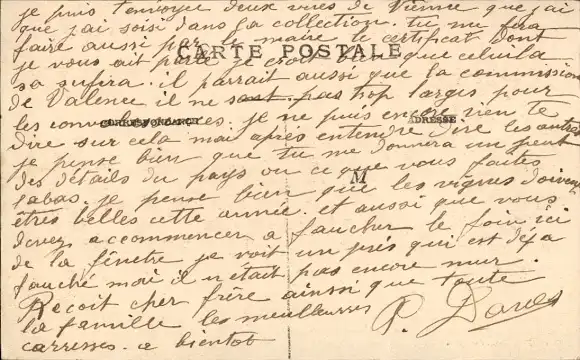 je puis t'envoyer deux vues de Vienne que j'ai
que j'ai soisi dans la collection. tu me fera
faire aussi par le maire le certificat dont
CARTE POSTALE
je vous ait parlé je croit bien que celuila
sa sufira. il parrait aussi que la commission
de Valence il ne sont pas trop larges pour
CORRESPONDANCE
ADRESSE
les convalescences. je ne puis encore rien te
dire sur cela mai après entendre dire les autres
je pense bien que tu me donnera un peut
des détails du pays ou ce que vous faites
M
labas. je pense bien que les vignes doivent
êtres belles cette année. et aussi que vous
devez accommencer a faucher le foin ici
de la fenêtre je voit un prés qui est déja
fauché moi il n'était pas encore mur.
Recoit cher frère ainsi que toute
la famille les meilleures
carresses. a bientot
P.